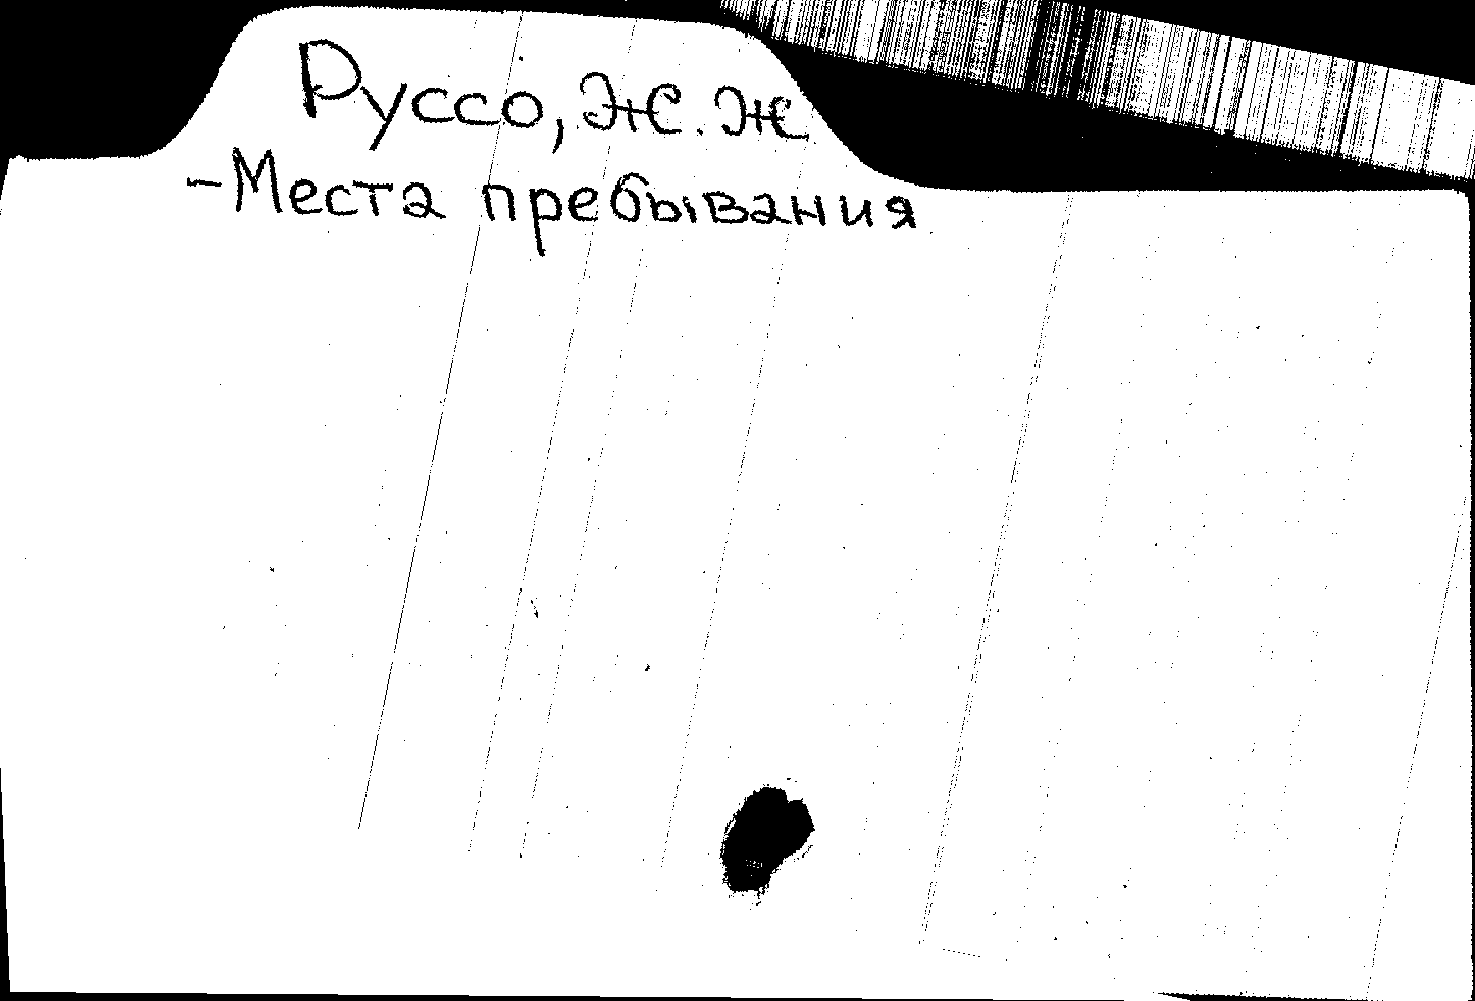 Руссо, Ж. Ж
- Места пребывания